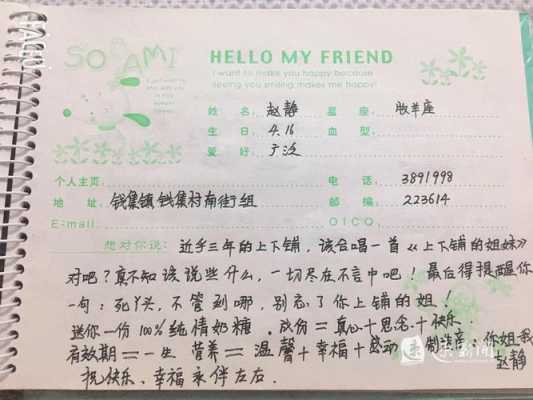 SO AMI
HELLO MY FRIEND
I want to make you happy because
seeing you smiling makes me happy!
姓 名: 赵静 星 座: 牧羊座
生 日: 4.16 血 型:
爱 好: 广泛
个人主页: 电 话: 3891998
地 址: 钱集镇钱集村南街组 邮 编: 223614
E-mail: OICQ:
想对你说: 近乎三年的上下铺,该合唱一首《上下铺的姐妹》
对吧?真不知该说些什么,一切尽在不言中吧!最后得提醒你
一句:死丫头,不管到哪,别忘了你上铺的姐!
送你一份100%纯情奶糖.成份=真心+思念+快乐
有效期=一生 营养=温馨+幸福+感动 制造商:你姐:我
赵静
祝快乐、幸福永伴左右.